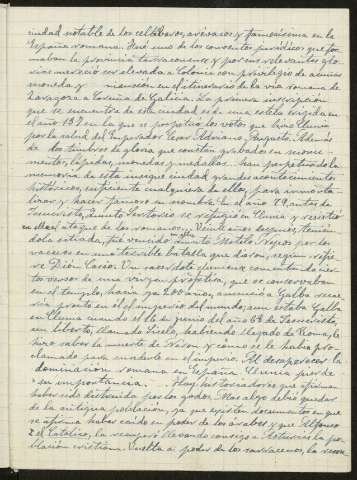 ciudad notable de los celtíberos, arévacos y famosísima en la
España romana. Fué uno de los conventos jurídicos que for
maban la provincia tarraconense y por sus relevantes glo
rias mereció ser elevada a Colonia con privilegio de acuñar
moneda y mansión en el itinerario de la vía romana de
Zaragoza a Coruña de Galicia. La primera inscripción
que se encuentra de esta ciudad es de una estela erigida en
el año 137 en la que a propósito de votos que hizo Clunia
por la salud del Emperador Cesar Adriano Augusto. Además
de dos timbres de gloria que constan grabados en monu
mentos, lápidas, monedas y medallas han perpetuado la
memoria de esta insigne ciudad grandes acontecimientos
históricos, suficiente cualquiera de ellos, para inmorta-
lizar y hacer famoso su nombre. En el año 79 antes de
Jesucristo, Quinto Sertorio se refugió en Clunia y resistió
en ella el ataque de los romanos. Veinte años después, tenién
dola sitiada, fué vencido en ella Quinto Metelo Nepos por los
vacceos en una terrible batalla que duró, según refie
re Dión Casio. Un sacerdote cluniense comentando cier
tos versos de una virgen profetisa, que se conservaban
en el templo, hacía ya 200 años, anunció a Galba recae
ría pronto en él el imperio del mundo; aun estaba Galba
en Clunia cuando el 16 de junio del año 68 de Jesucristo,
su liberto, llamado Sicelo, habiendo llegado de Roma, le
hizo saber la muerte de Nerón y cómo se le había pro-
clamado para sucederle en el imperio. Al desaparecer la
dominación romana en España Clunia pierde
su importancia. Hay historiadores que afirman
haber sido destruida por los godos. Mas algo debió quedar
de la antigua población, ya que existen documentos en que
se afirma haber caído en poder de los árabes y que Alfonso
I el Católico, la recuperó llevando consigo a Asturias la po
blación cristiana. Vuelta a poder de los sarracenos, la